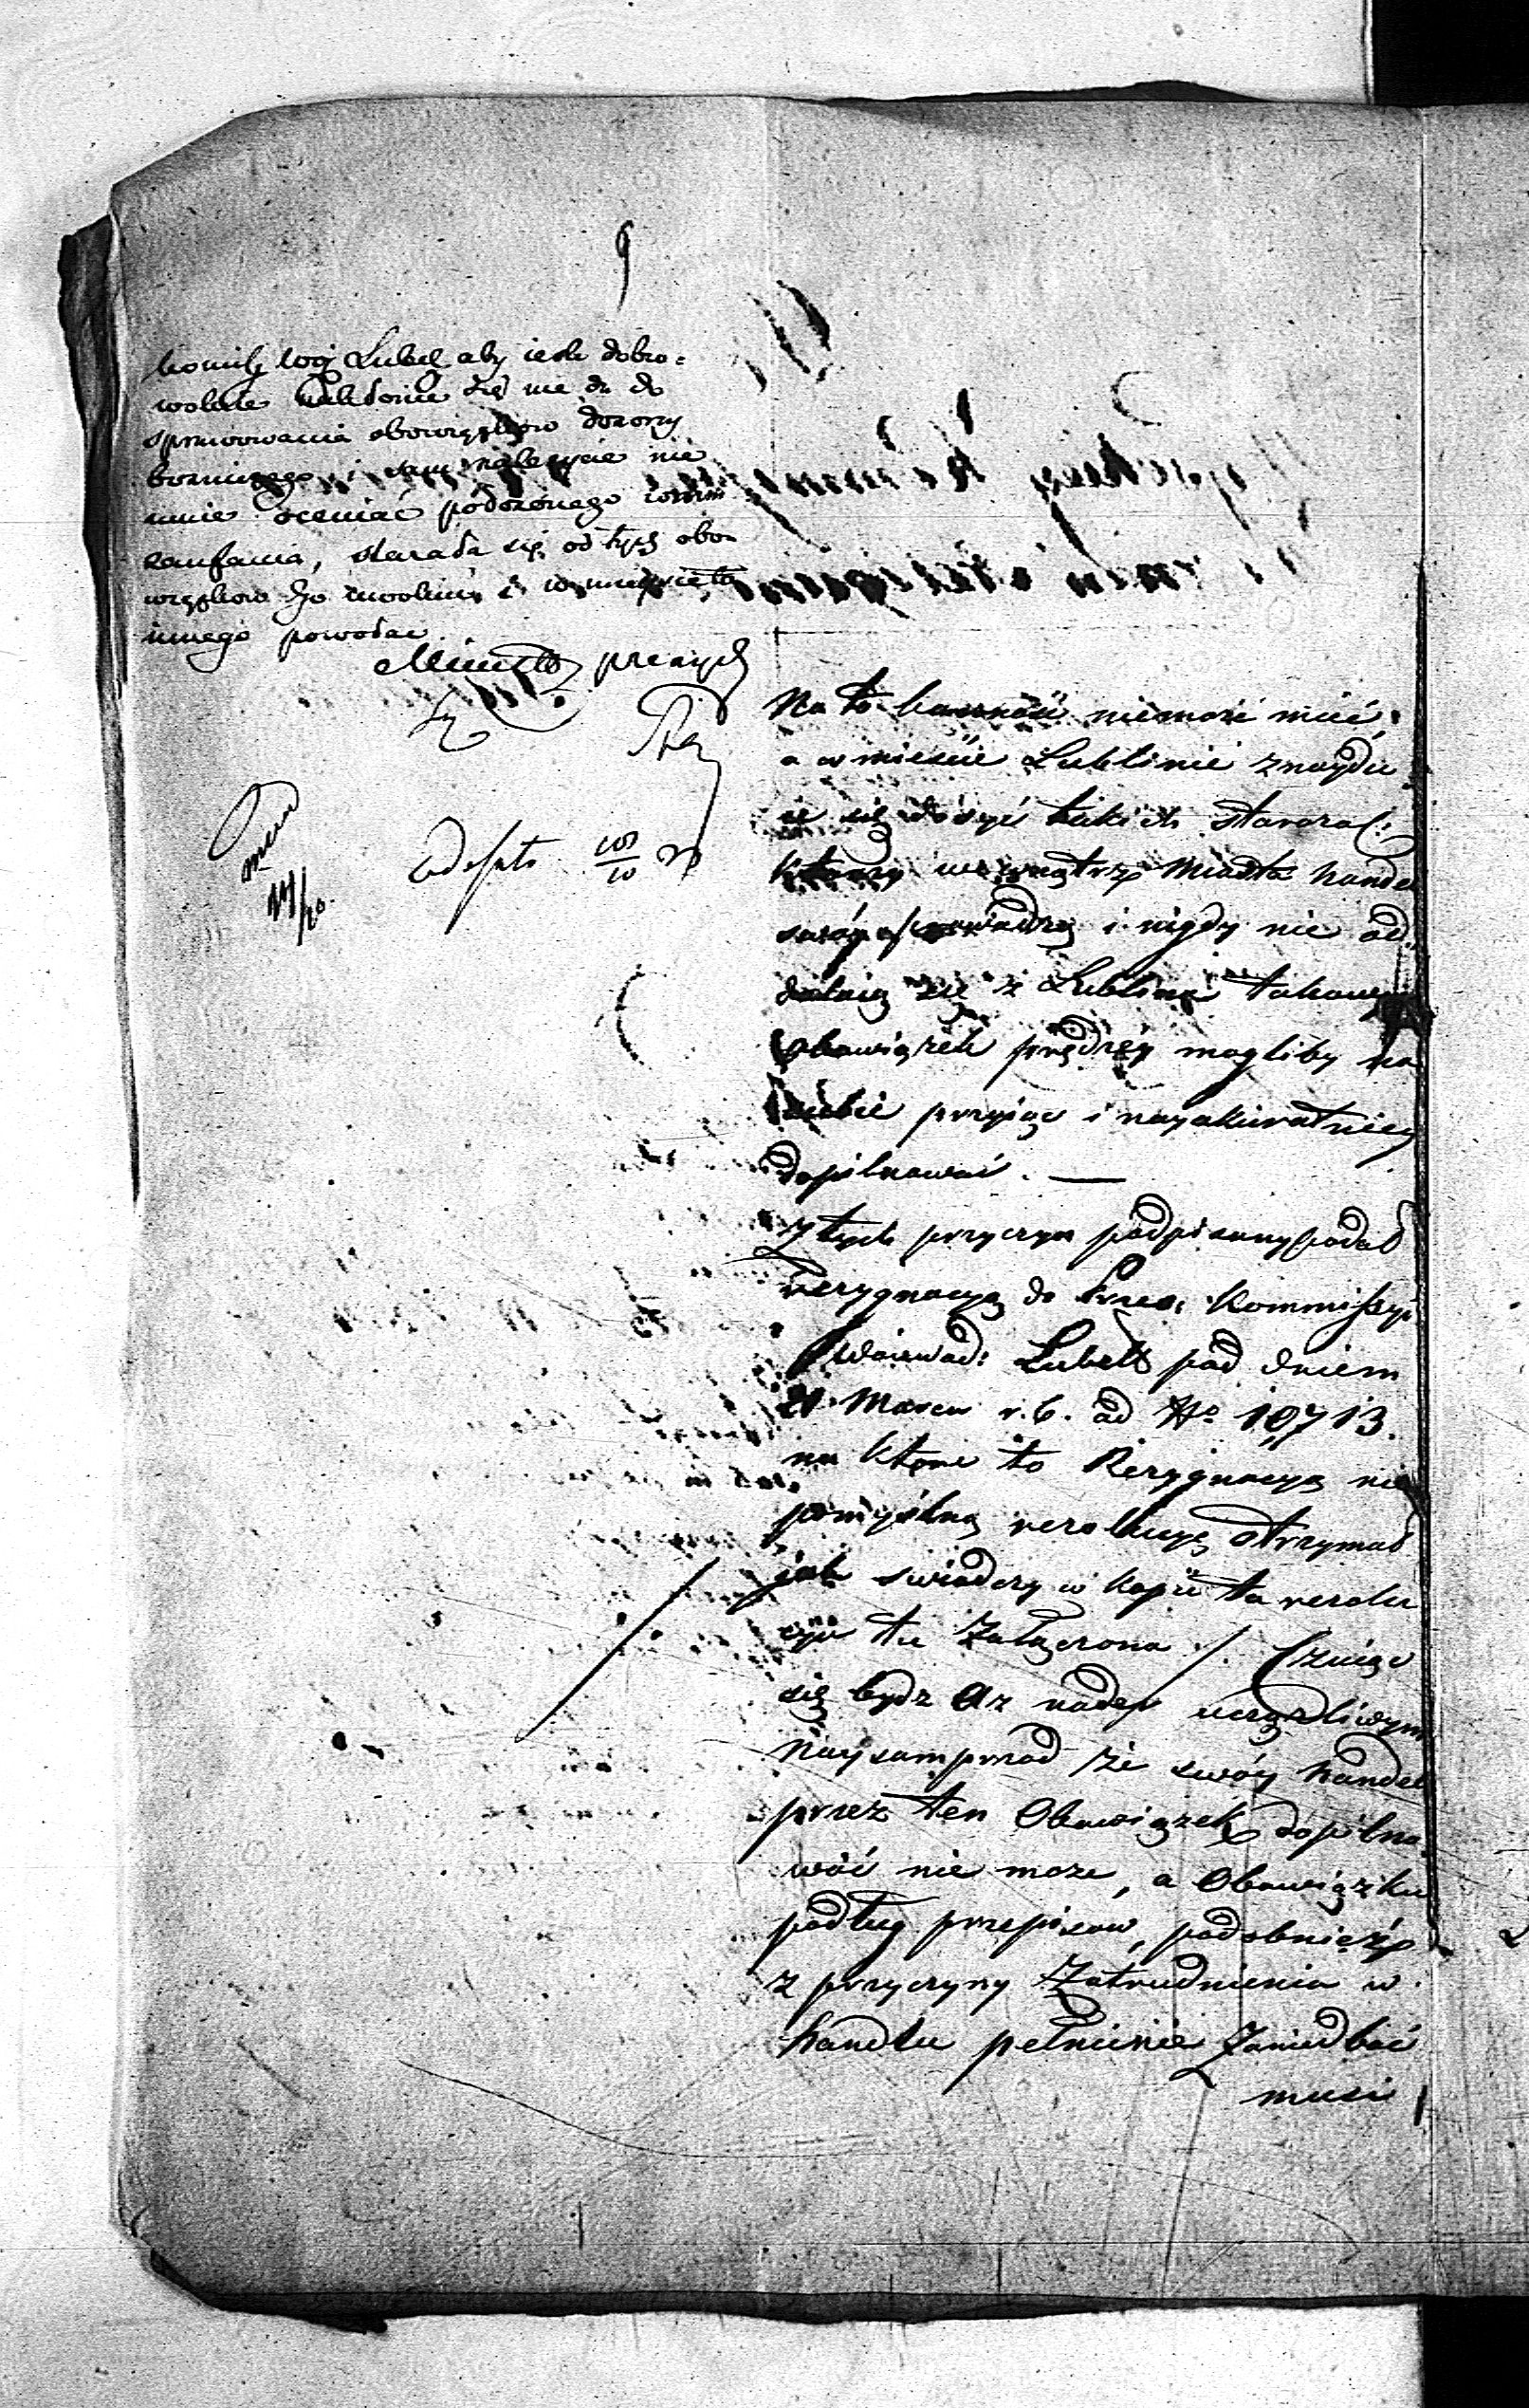 9
Komisy Woj Lubel aby ieśli dobro=
wolnie nakłonić się nie da do
sprawowania obowiązkow dozoru
bożniczego i sam należycie nie
umie oceniać położonego w nim
zaufania, starała się od tych obo-
wiązkow Go uwolnić i w miejsce to
innego powołać
Na to baczność niemoże mieć,
a w mieście Lublinie znaydu
ie się dosyć takich starozak:
ktorzy wewnątrz Miasta handel
swóy prowadzą i nigdy nie od=
dalaią się z Lublina takowy
Obowiązek prędzey mogliby na
siebie przyiąć i nayakuratniey
dopilnować. —
Z tych przyczyn podpisany podał
rezygnacyą do Prześ. Kommissyi
Woiewod: Lubels pod dniem
21 Marca r. b. ad No 10713.
na ktore to Rezygnacyą nie
pomyślną rezolucyę otrzymał
jak swiadczy w kopii ta rezolu
cya tu Załączona /. Czuiąc
się bydź az nader uciążliwym
Naysamprzod że swóy handel
przez ten Obowiązek dopilno
wać nie może, a Obowiązku
podług przepisow, podobnież
z przyczyny Zatrudnienia w
handlu pełnienie Zaniedbać
musi